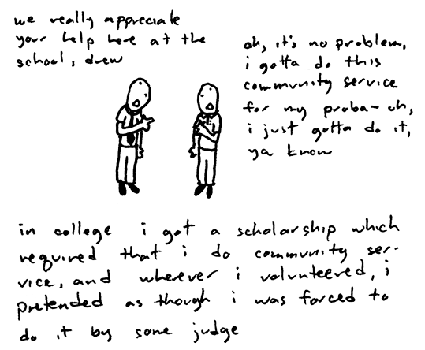 we really appreciate
your help here at the
school, drew
oh, it's no problem,
i gotta do this
community service
for my proba- uh,
i just gotta do it,
ya know
in college i got a scholarship which
required that i do community ser-
vice, and wherever i volunteered, i
pretended as though i was forced to
do it by some judge